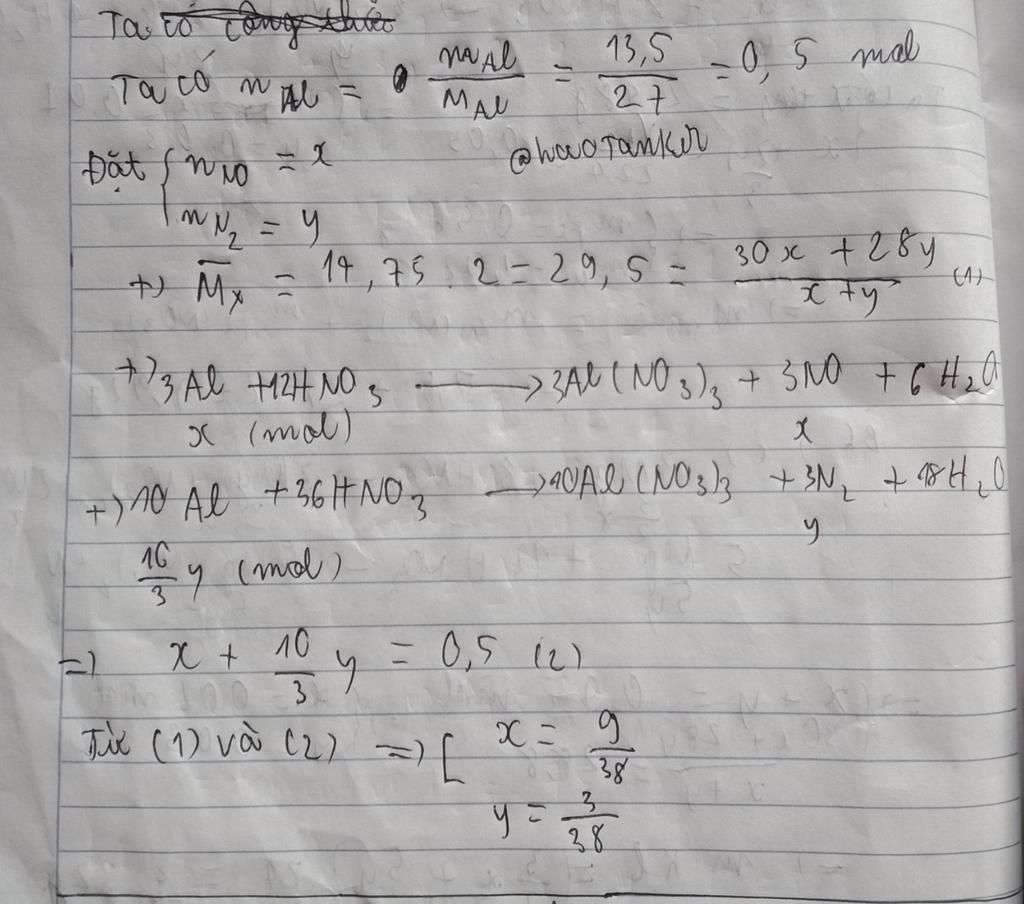 Ta có công thức
Ta có n Al = m Al / M Al = 13,5 / 27 = 0,5 mol
Đặt { n NO = x
@haoTanker
n N2 = y
+) M̅x = 14,75 . 2 = 29,5 = (30x + 28y) / (x + y) (1)
+) 3Al + 12HNO3 → 3Al(NO3)3 + 3NO + 6H2O
x (mol) x
+) 10Al + 36HNO3 → 10Al(NO3)3 + 3N2 + 18H2O
y
10/3 y (mol)
=> x + 10/3 y = 0,5 (2)
Từ (1) và (2) => [ x = 9/38
y = 3/38